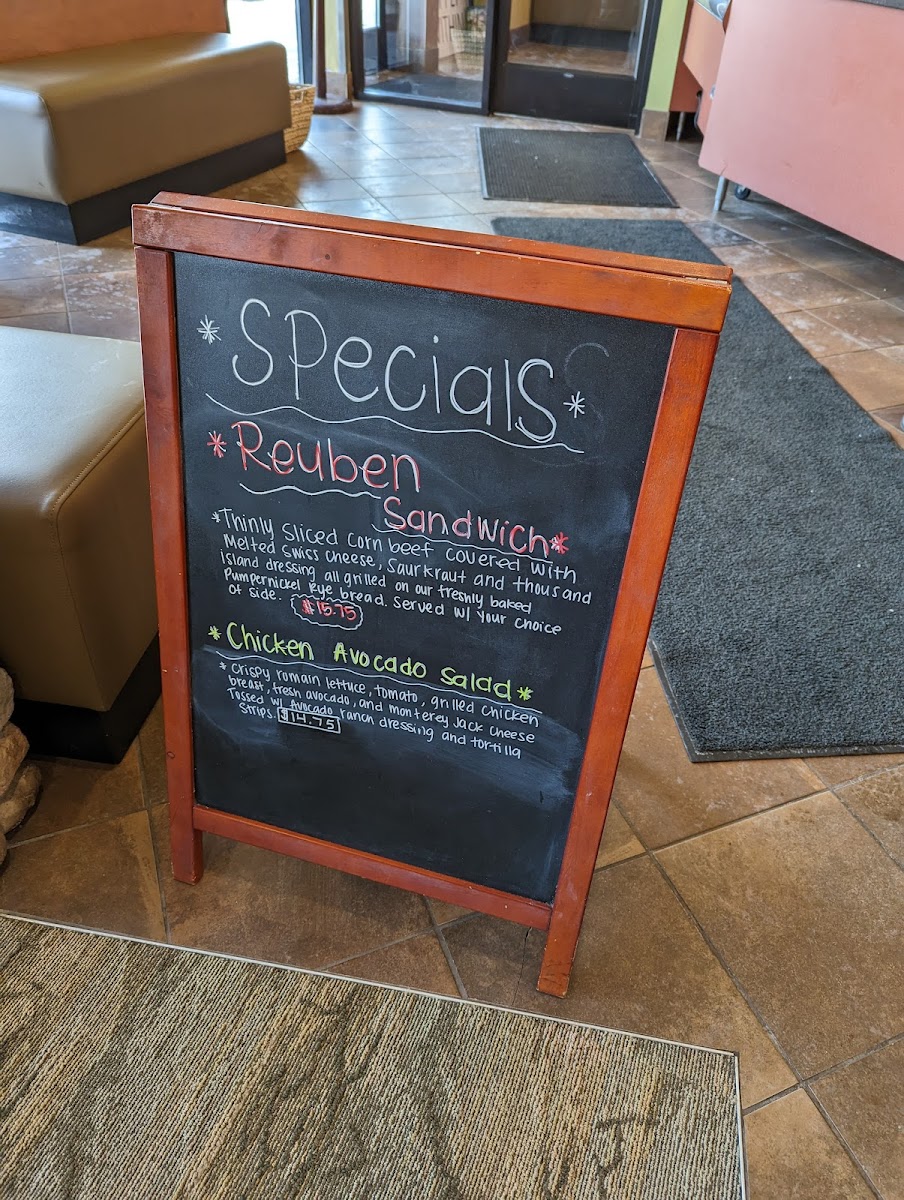 *SPecialS*
*Reuben
Sandwich*
*Thinly Sliced Corn beef covered with
Melted Swiss cheese, Saurkraut and thousand
island dressing all grilled on our freshly baked
Pumpernickel Rye bread. Served w/ your choice
of side. $15.75
*Chicken Avocado Salad*
*Crispy romain lettuce, tomato, grilled chicken
breast, fresh avocado, and monterey Jack cheese
Tossed w/ Avocado ranch dressing and tortilla
Strips. $14.75